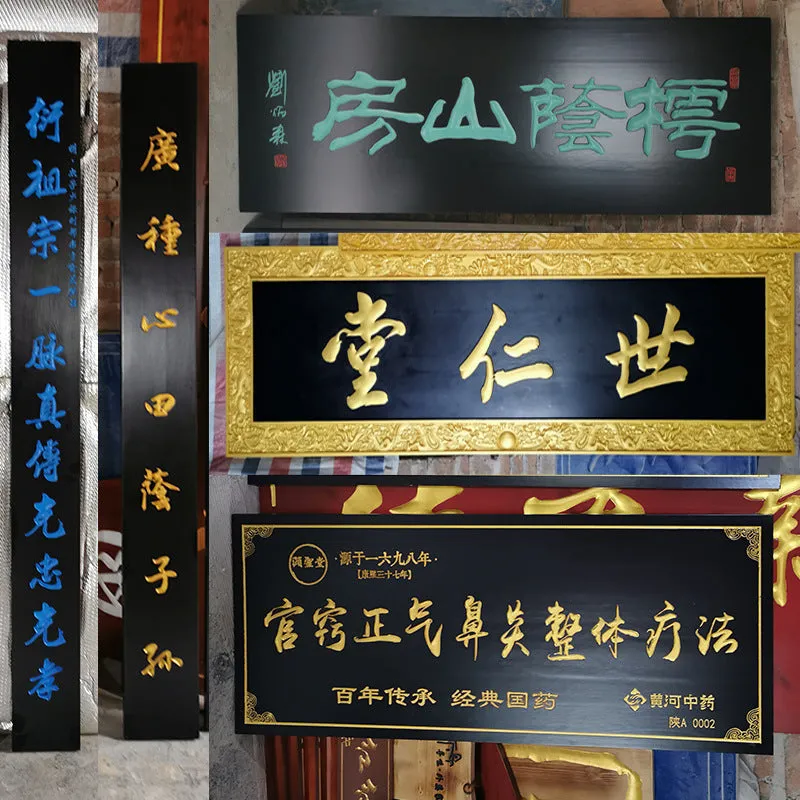 衍祖宗一脉真傳克忠克孝
廣種心田蔭子孫
樗蔭山房
劉炳森
世仁堂
源于一六九八年
【康熙三十七年】
官窍正气鼻炎整体疗法
百年传承 经典国药
黄河中药
陕A 0002